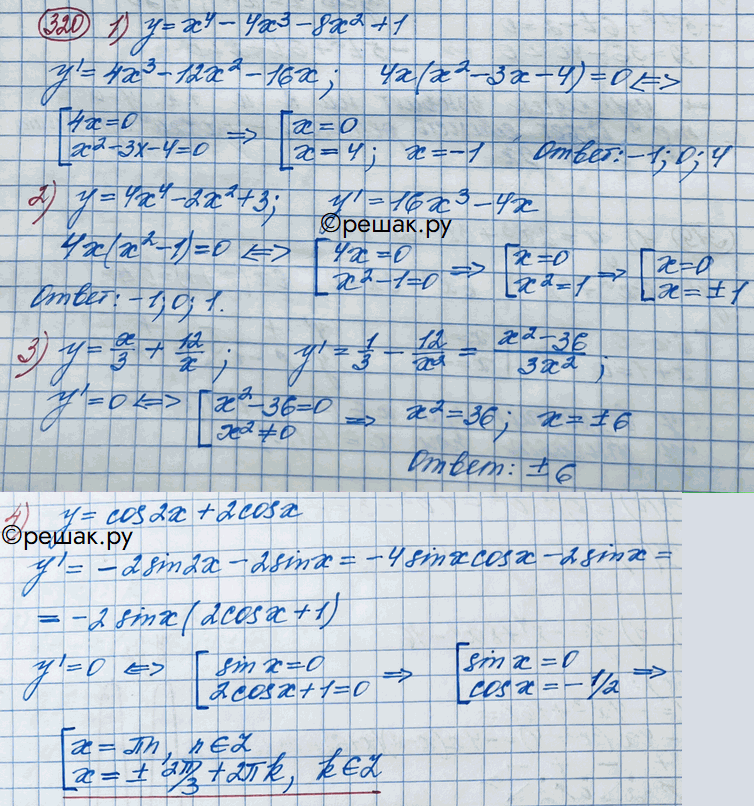 320 1) y = x⁴ - 4x³ - 8x² + 1
y' = 4x³ - 12x² - 16x; 4x(x² - 3x - 4) = 0 <=>
[4x = 0
x² - 3x - 4 = 0 => [x = 0
x = 4; x = -1 Ответ: -1; 0; 4
2) y = 4x⁴ - 2x² + 3; y' = 16x³ - 4x
©решак.ру
4x(x² - 1) = 0 <=> [4x = 0
x² - 1 = 0 => [x = 0
x² = 1 => [x = 0
x = ±1
Ответ: -1; 0; 1.
3) y = x/3 + 12/x; y' = 1/3 - 12/x² = x² - 36/3x²;
y' = 0 <=> [x² - 36 = 0
x² ≠ 0 => x² = 36; x = ±6
Ответ: ±6
4) y = cos2x + 2cosx
©решак.ру
y' = -2sin2x - 2sinx = -4sinxcosx - 2sinx =
= -2sinx(2cosx + 1)
y' = 0 <=> [sinx = 0
2cosx + 1 = 0 => [sinx = 0
cosx = -1/2 =>
[x = πn, n ∈ Z
x = ± 2π/3 + 2πk, k ∈ Z